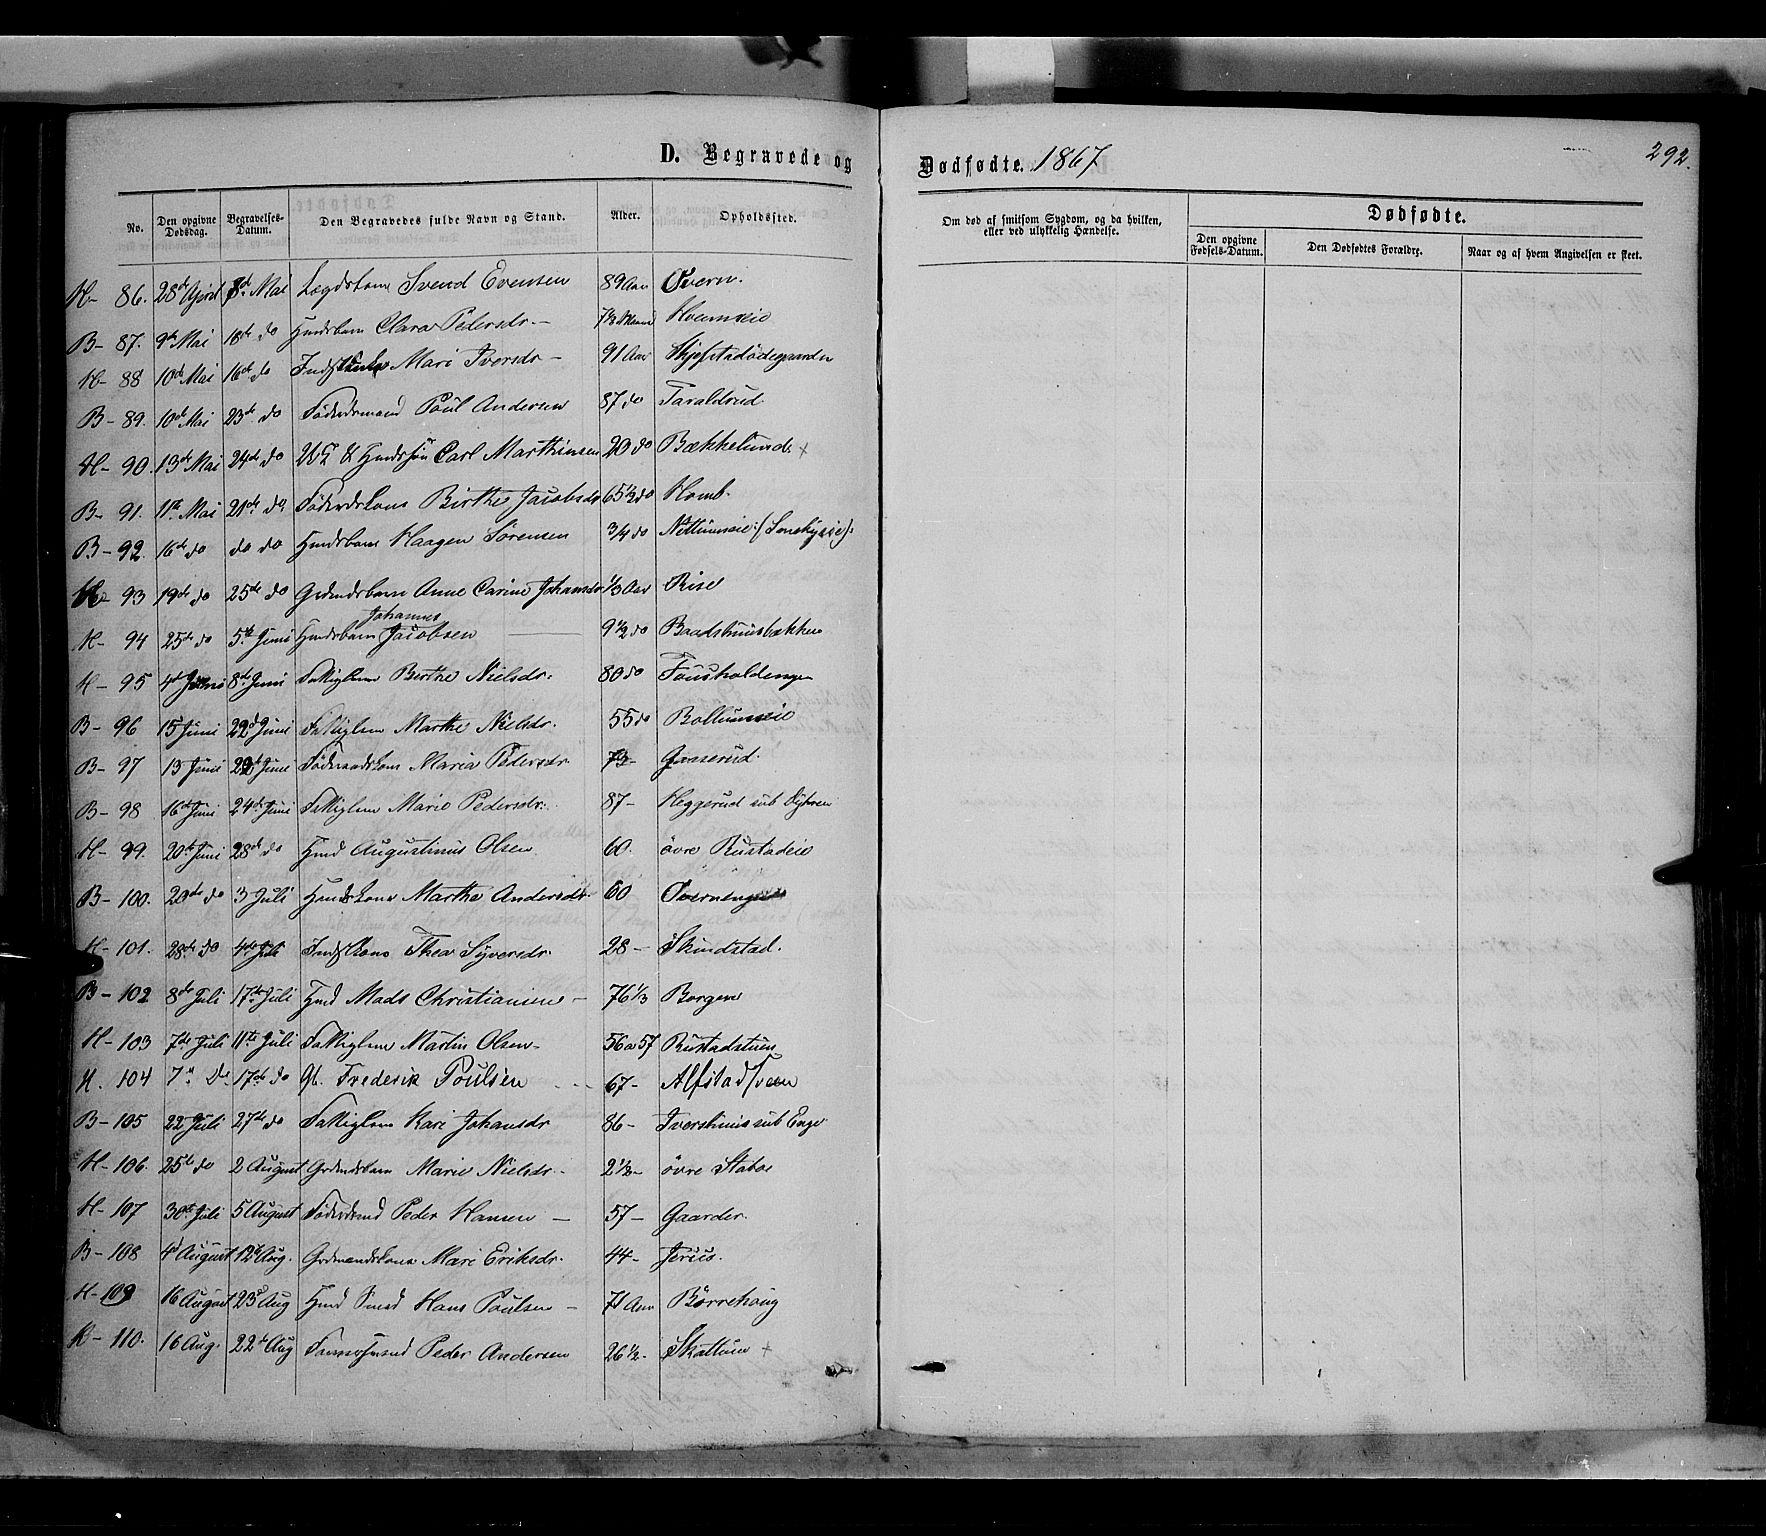 D. Begravede og Dødfødte. 1867
292.
No. Den opgivne Dødsdag. Begravelses-Datum. Den Begravedes fulde Navn og Stand. Alder. Opholdssted. Om død af smitsom Sygdom, og da hvilken, eller ved ulykkelig Hændelse. Dødfødte. Den opgivne Fødsels-Datum. Den Dødfødtes Forældre. Naar og af hvem Angivelsen er skeet.
H- 86. 28de April 8de Mai Lægdskone Svend Evensen 89 Aar Øvern.
B- 87. 9de Mai 18de do Hmdsbarn Clara Pedersdr. - 7½ Maaned Hvemseie
H- 88 10de Mai 16de do Mari Iversdr - 91 Aar Skjefstadødegaarden
B- 89. 10de Mai 23de do Føderdsmand Poul Andersen 87 do Taraldrud.
H- 90. 13de Mai 24de do Carl Marthinsen 20 do Bækkelund +
B- 91. 11te Mai 21de do Føderdskone Birthe Jacobsdr 65½ do Homb.
B- 92. 16de do do do Hmdsbarn Haagen Sørensen 3/4 do
93 19de do 25de do Grdmdsbarn Anne Carine Johansdr 1/3 Aar Rise
H- 94 25de do 5te Juni Hmdsbarn Johannes Jacobsen 9½ do Baadshuusbakken
H- 95 4de Juni 8de Juni Fattiglem Birthe Nielsdr. 80 do
B- 96 15 Juni 22d Juni Fattiglem Marthe Nielsdr. 55 do
B- 97 13 Juni 22d Juni Føderaadskone Maria Pedersdr. 73-
B- 98 16de Juni 24de Juni Fattiglem Marie Pedersdr. 87- Heggerud sub
H- 99. 20de Juni 28de do Hmd Augustinus Olsen 60. øvre Rustadeie
B- 100. 20de do 3 Juli Hmdskone Marthe Andersdr. 60
H- 101. 28de do 4de Juli Indstkone Thea Syversdr. 28- Skindstad.
B- 102 8de Juli 17de Juli Hmd Mads Christiansen - 76 1/3 Borgen
H- 103 7de Juli 11te Juli Fattiglem Martin Olsen- 56 a 57 Rustadstuen
H. 104 7de Do 17de do Frederik Poulsen 67- Alfstadsveen
B- 105 22 Juli 27de do Fattiglem Kari Johansdr 86- Ivershuus sub Enge
H- 106. 25de do 2 August Grdmdsbarn Marie Nielsdr. - 2½- øvre Staboe
H- 107 30te Juli 5 August Føderdmd Peder Hansen - 57- Gaarder.
B- 108 4d August 12te Aug. Grdmandskone Mari Eriksdr. 44-
H- 109 16 August 23d Aug Hmd Smed Hans Poulsen - 71 Aar Børrehaug
H- 110. 16 Aug. 22de Aug Peder Andersen 26½- Skattum +